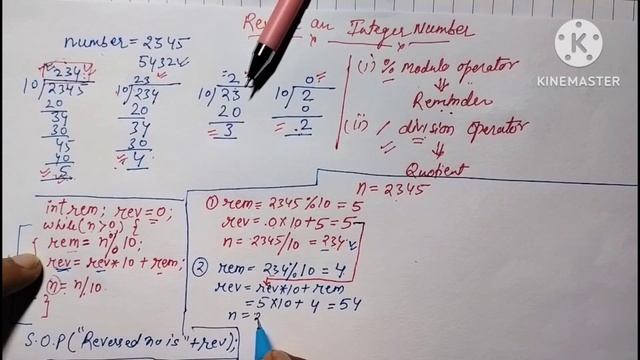 Reverse an Integer Number
number = 2345
5432
234
10 2345
20
34
30
45
40
5
23
10 234
20
34
30
4
2
10 23
20
3
0
10 2
0
2
(i) % Modulo operator
Reminder
(ii) / division operator
Quotient
int rem; rev=0;
while(n>0) {
rem = n%10;
rev = rev*10 + rem;
n = n/10
}
S.O.P("Reversed no is"+rev);
n = 2345
① rem = 2345 % 10 = 5
rev = 0x10+5 = 5
n = 2345/10 = 234
② rem = 234%10 = 4
rev = rev*10 + rem
= 5x10+ 4 = 54
n = 2
KINEMASTER